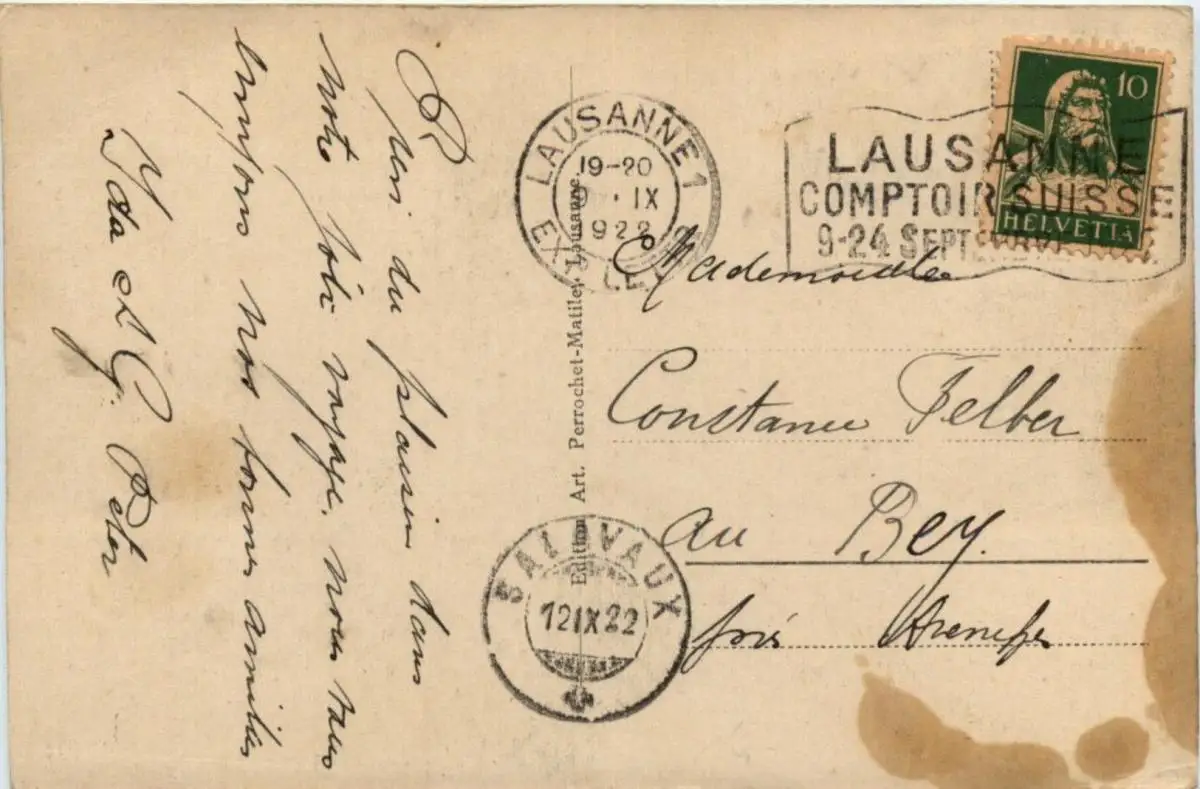 Plein du plaisir dans
notre joli voyage. nous vous
envoyons nos bonnes amitiés
Ida & G. Peter
Edition Art. Perrochet-Matile, Lausanne
LAUSANNE 1
19-20
IX
922
EXP. LET.
LAUSANNE
COMPTOIR SUISSE
9-24 SEPTEMBRE
10
HELVETIA
Mademoiselle
Constance Felber
au Bey.
près Avenches
SALAVAUX
12 IX 22